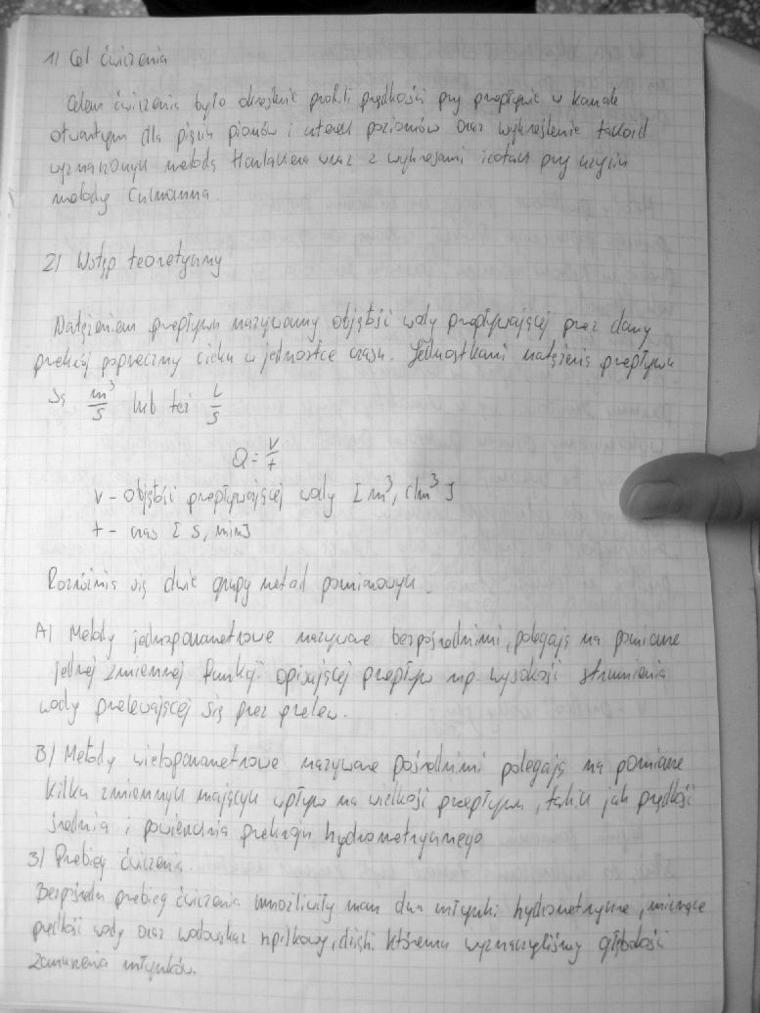 1) Cel ćwiczenia
Celem ćwiczenia było określenie profili prędkości przy przepływie w kanale
otwartym dla pięciu pionów i czterech poziomów oraz wykreślenie tachoid
wyznaczonych metodą Harlachera wraz z wykresami izotach przy użyciu
metody Culmanna.
2) Wstęp teoretyczny
Natężeniem przepływu nazywamy objętość wody przepływającej przez dany
przekrój poprzeczny cieku w jednostce czasu. Jednostkami natężenia przepływu
są m³/s lub też L/s
Q = V/t
V - objętość przepływającej wody [m³, dm³]
t - czas [s, min]
Rozróżnia się dwie grupy metod pomiarowych.
A) Metody jednoparametrowe nazywane bezpośrednimi, polegają na pomiarze
jednej zmiennej funkcji opisującej przepływ np. wysokość strumienia
wody przelewającej się przez przelew.
B) Metody wieloparametrowe nazywane pośrednimi polegają na pomiarze
kilku zmiennych mających wpływ na wielkość przepływu, takich jak prędkość
średnia i powierzchnia przekroju hydrometrycznego
3) Przebieg ćwiczenia.
przebieg ćwiczenia umożliwiły nam dwa młynki hydrometryczne, mierzące
prędkość wody oraz wodowskaz szpilkowy, dzięki któremu wyznaczyliśmy głębokość
zanurzenia młynków.